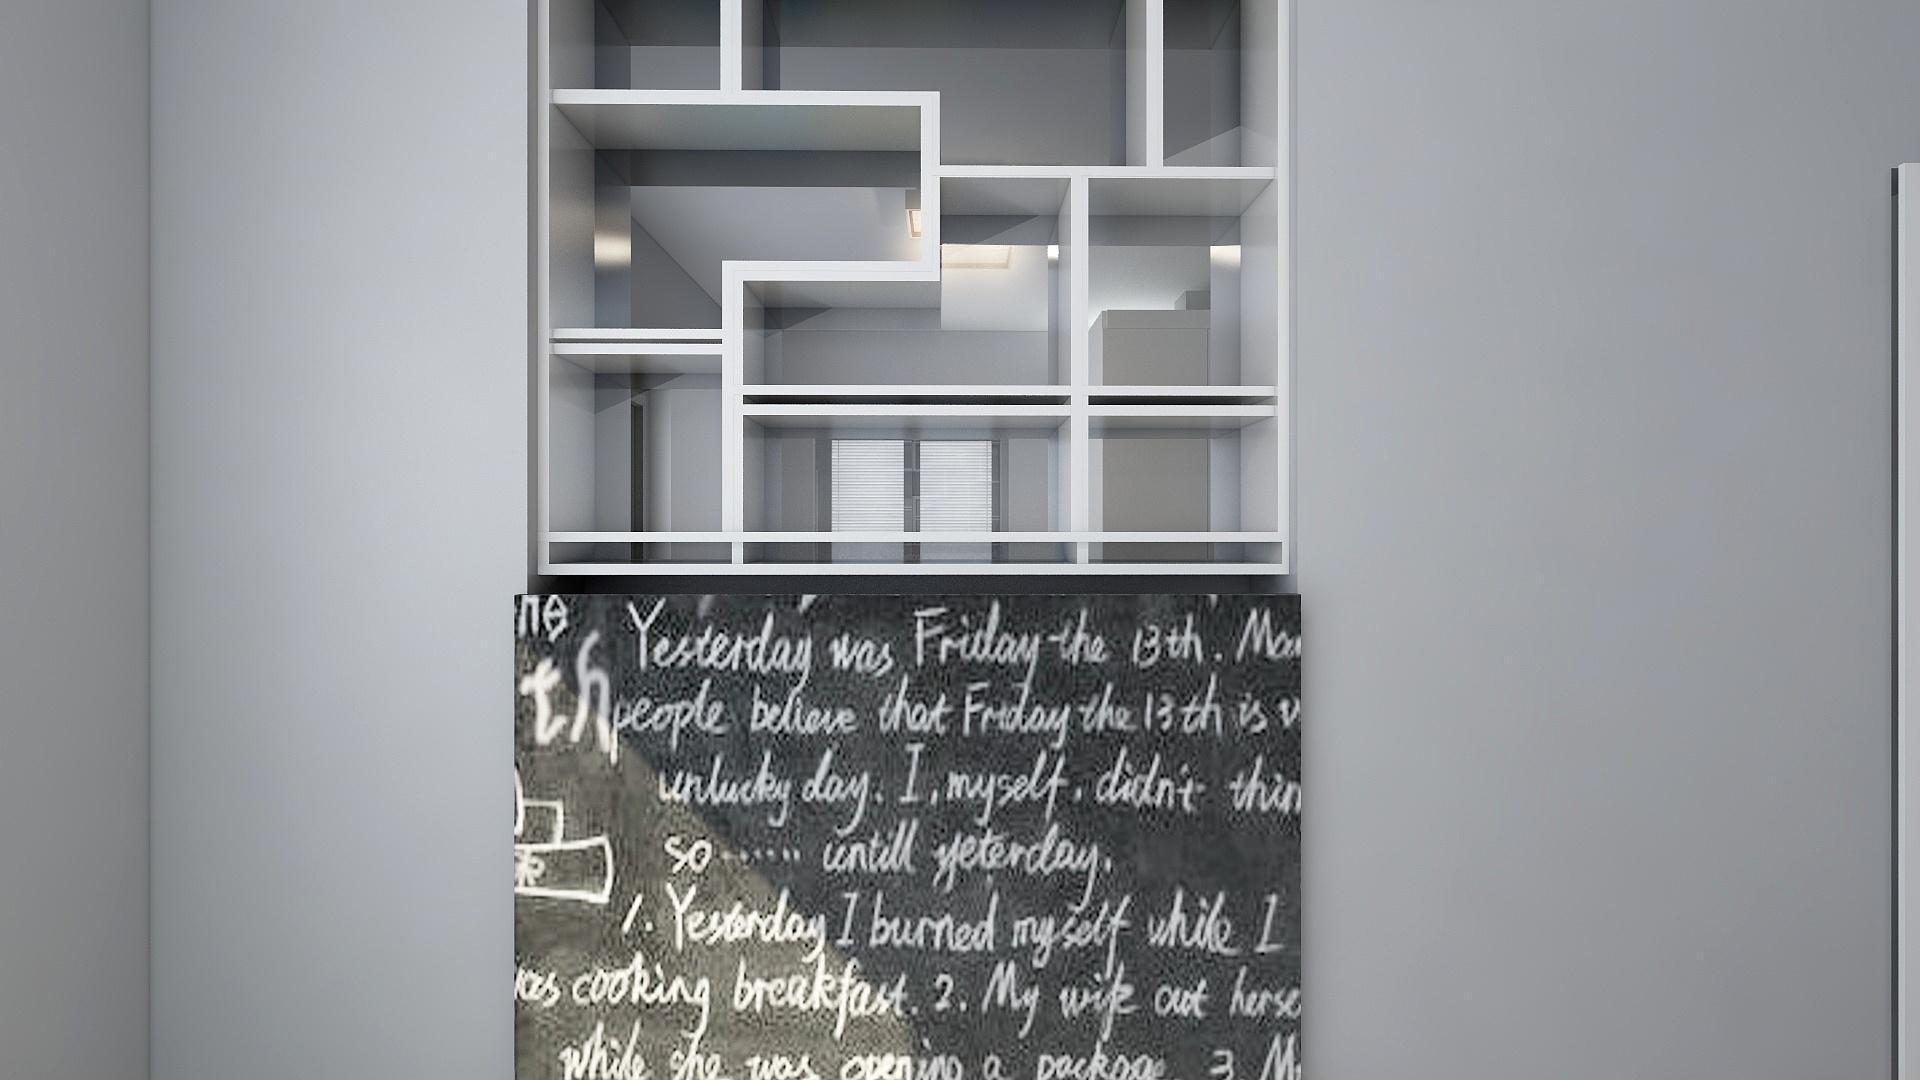 Yesterday was Friday the 13th. Man
people believe that Friday the 13th is v
unlucky day. I, myself, didn't thin
so ...... untill yeterday.
1. Yesterday I burned myself while I
was cooking breakfast. 2. My wife cut herse
while she was opening a package. 3. M
th